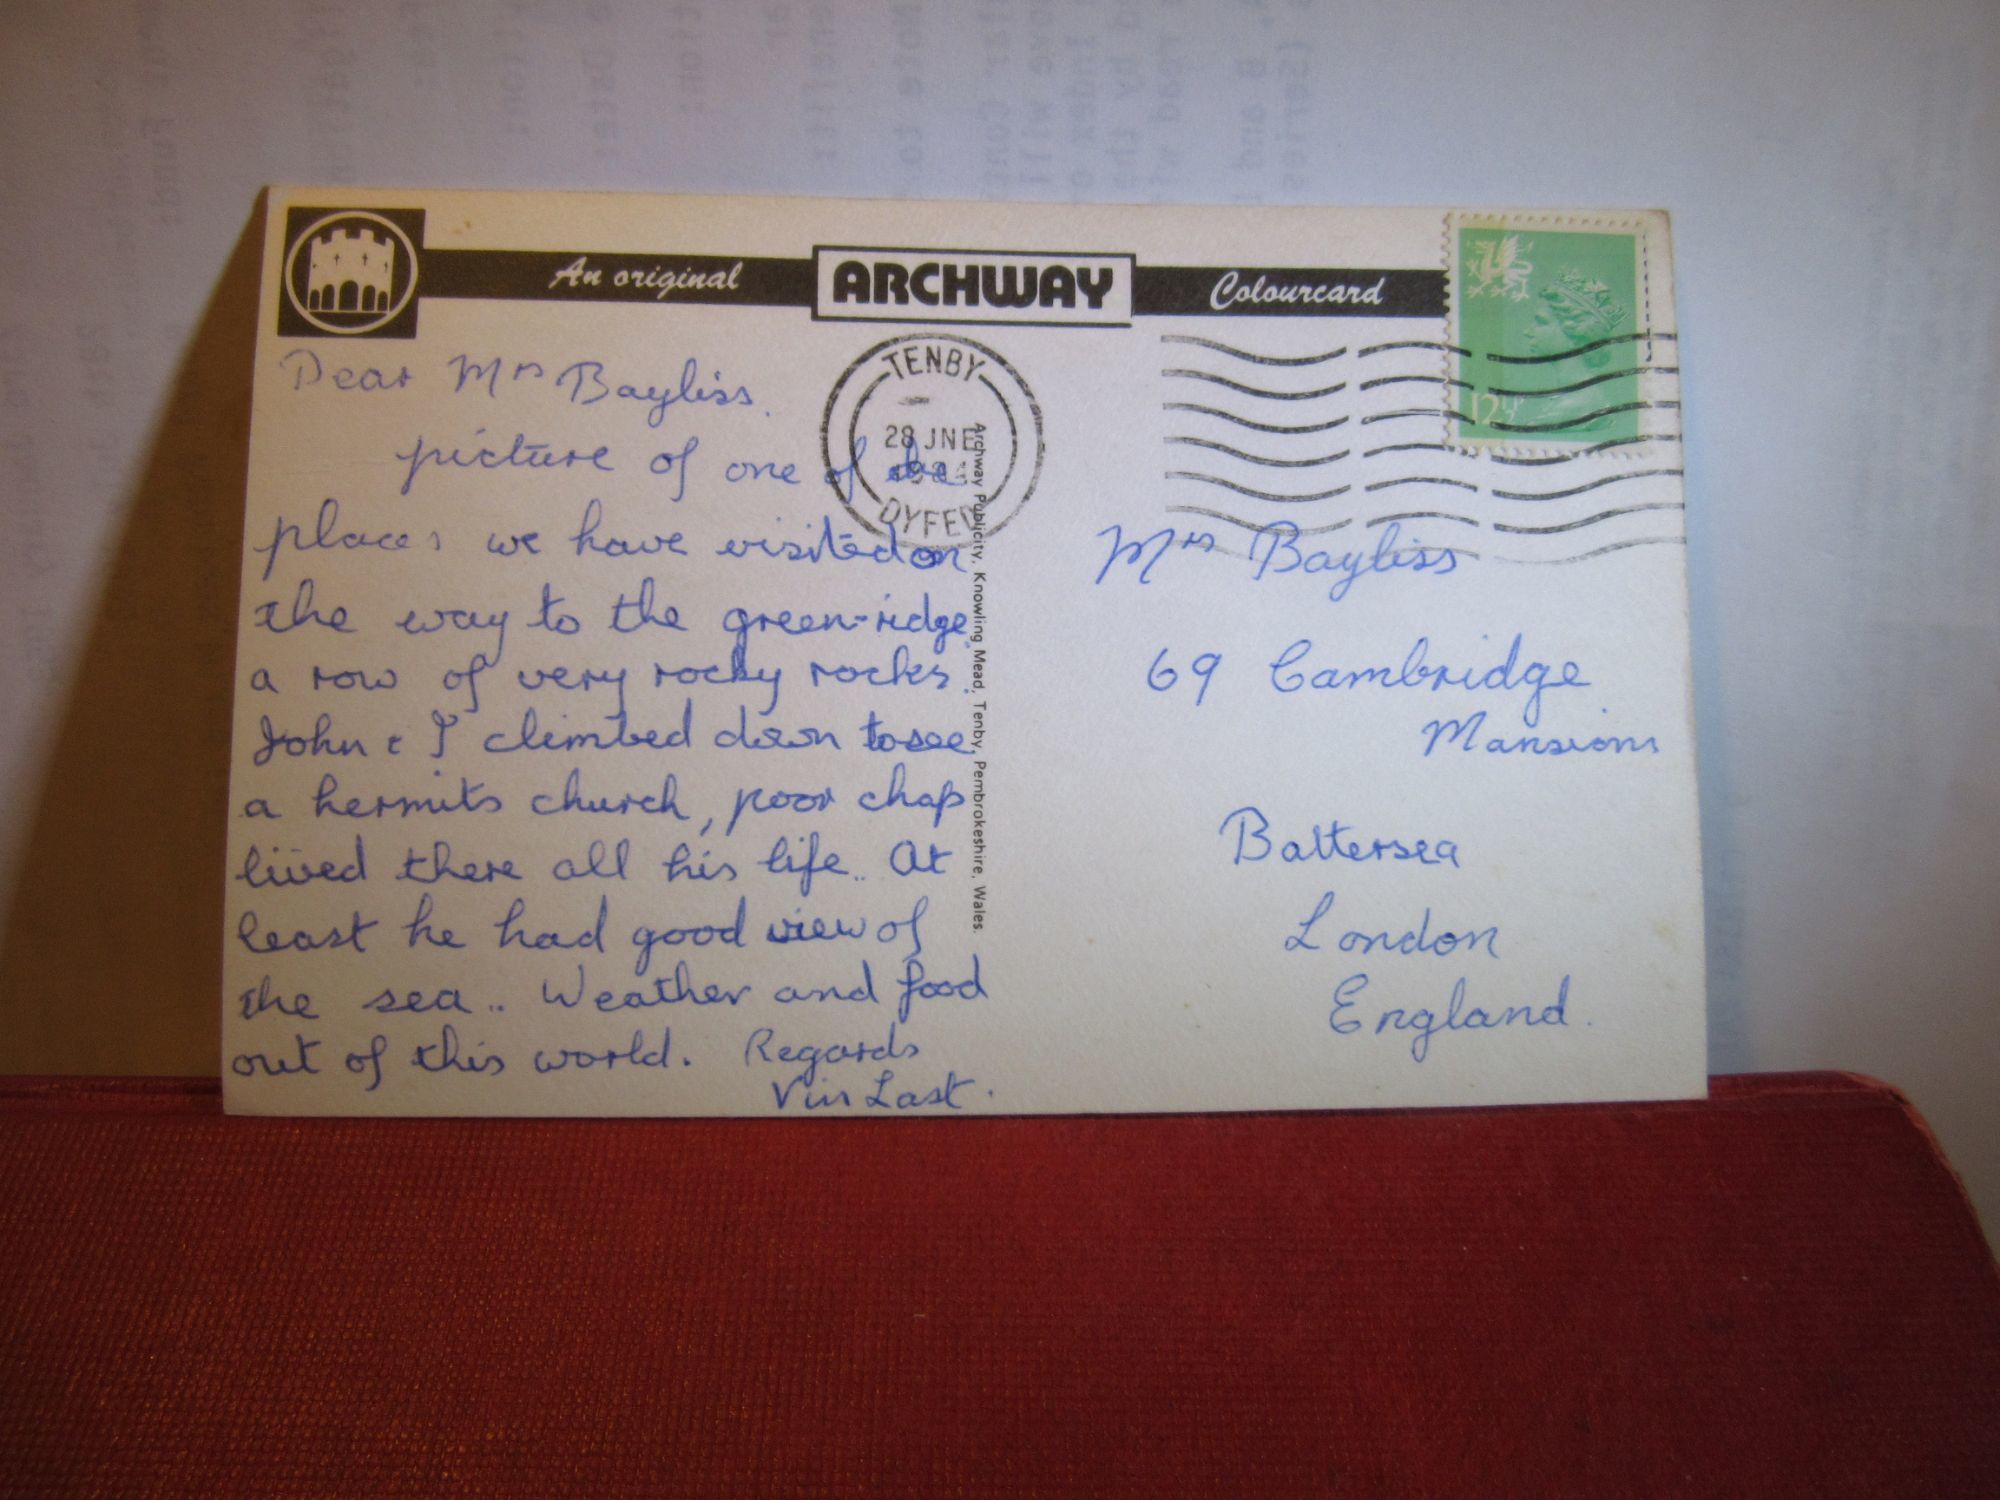 An original ARCHWAY Colourcard
TENBY
28 JNE
DYFED
12½P
Dear Mrs Bayliss.
picture of one of the
places we have visited on
the way to the green-ridge
a row of very rocky rocks.
John & I climbed down to see
a hermits church, poor chap
lived there all his life.. At
least he had good view of
the sea.. Weather and food
out of this world. Regards
Vin Last.
Archway Publicity, Knowling Mead, Tenby, Pembrokeshire, Wales.
Mrs Bayliss
69 Cambridge
Mansions
Battersea
London
England.